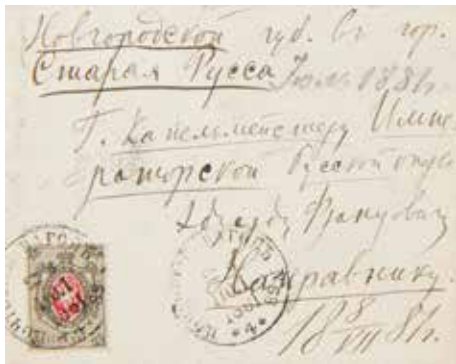 Новгородской губ. въ гор.
Старая Русса Іюль 1881.
Г. Капельмейстеру Импе
раторской Русской оперы
Эдуарду Францовичу
Направнику.
18 8/VII 81.